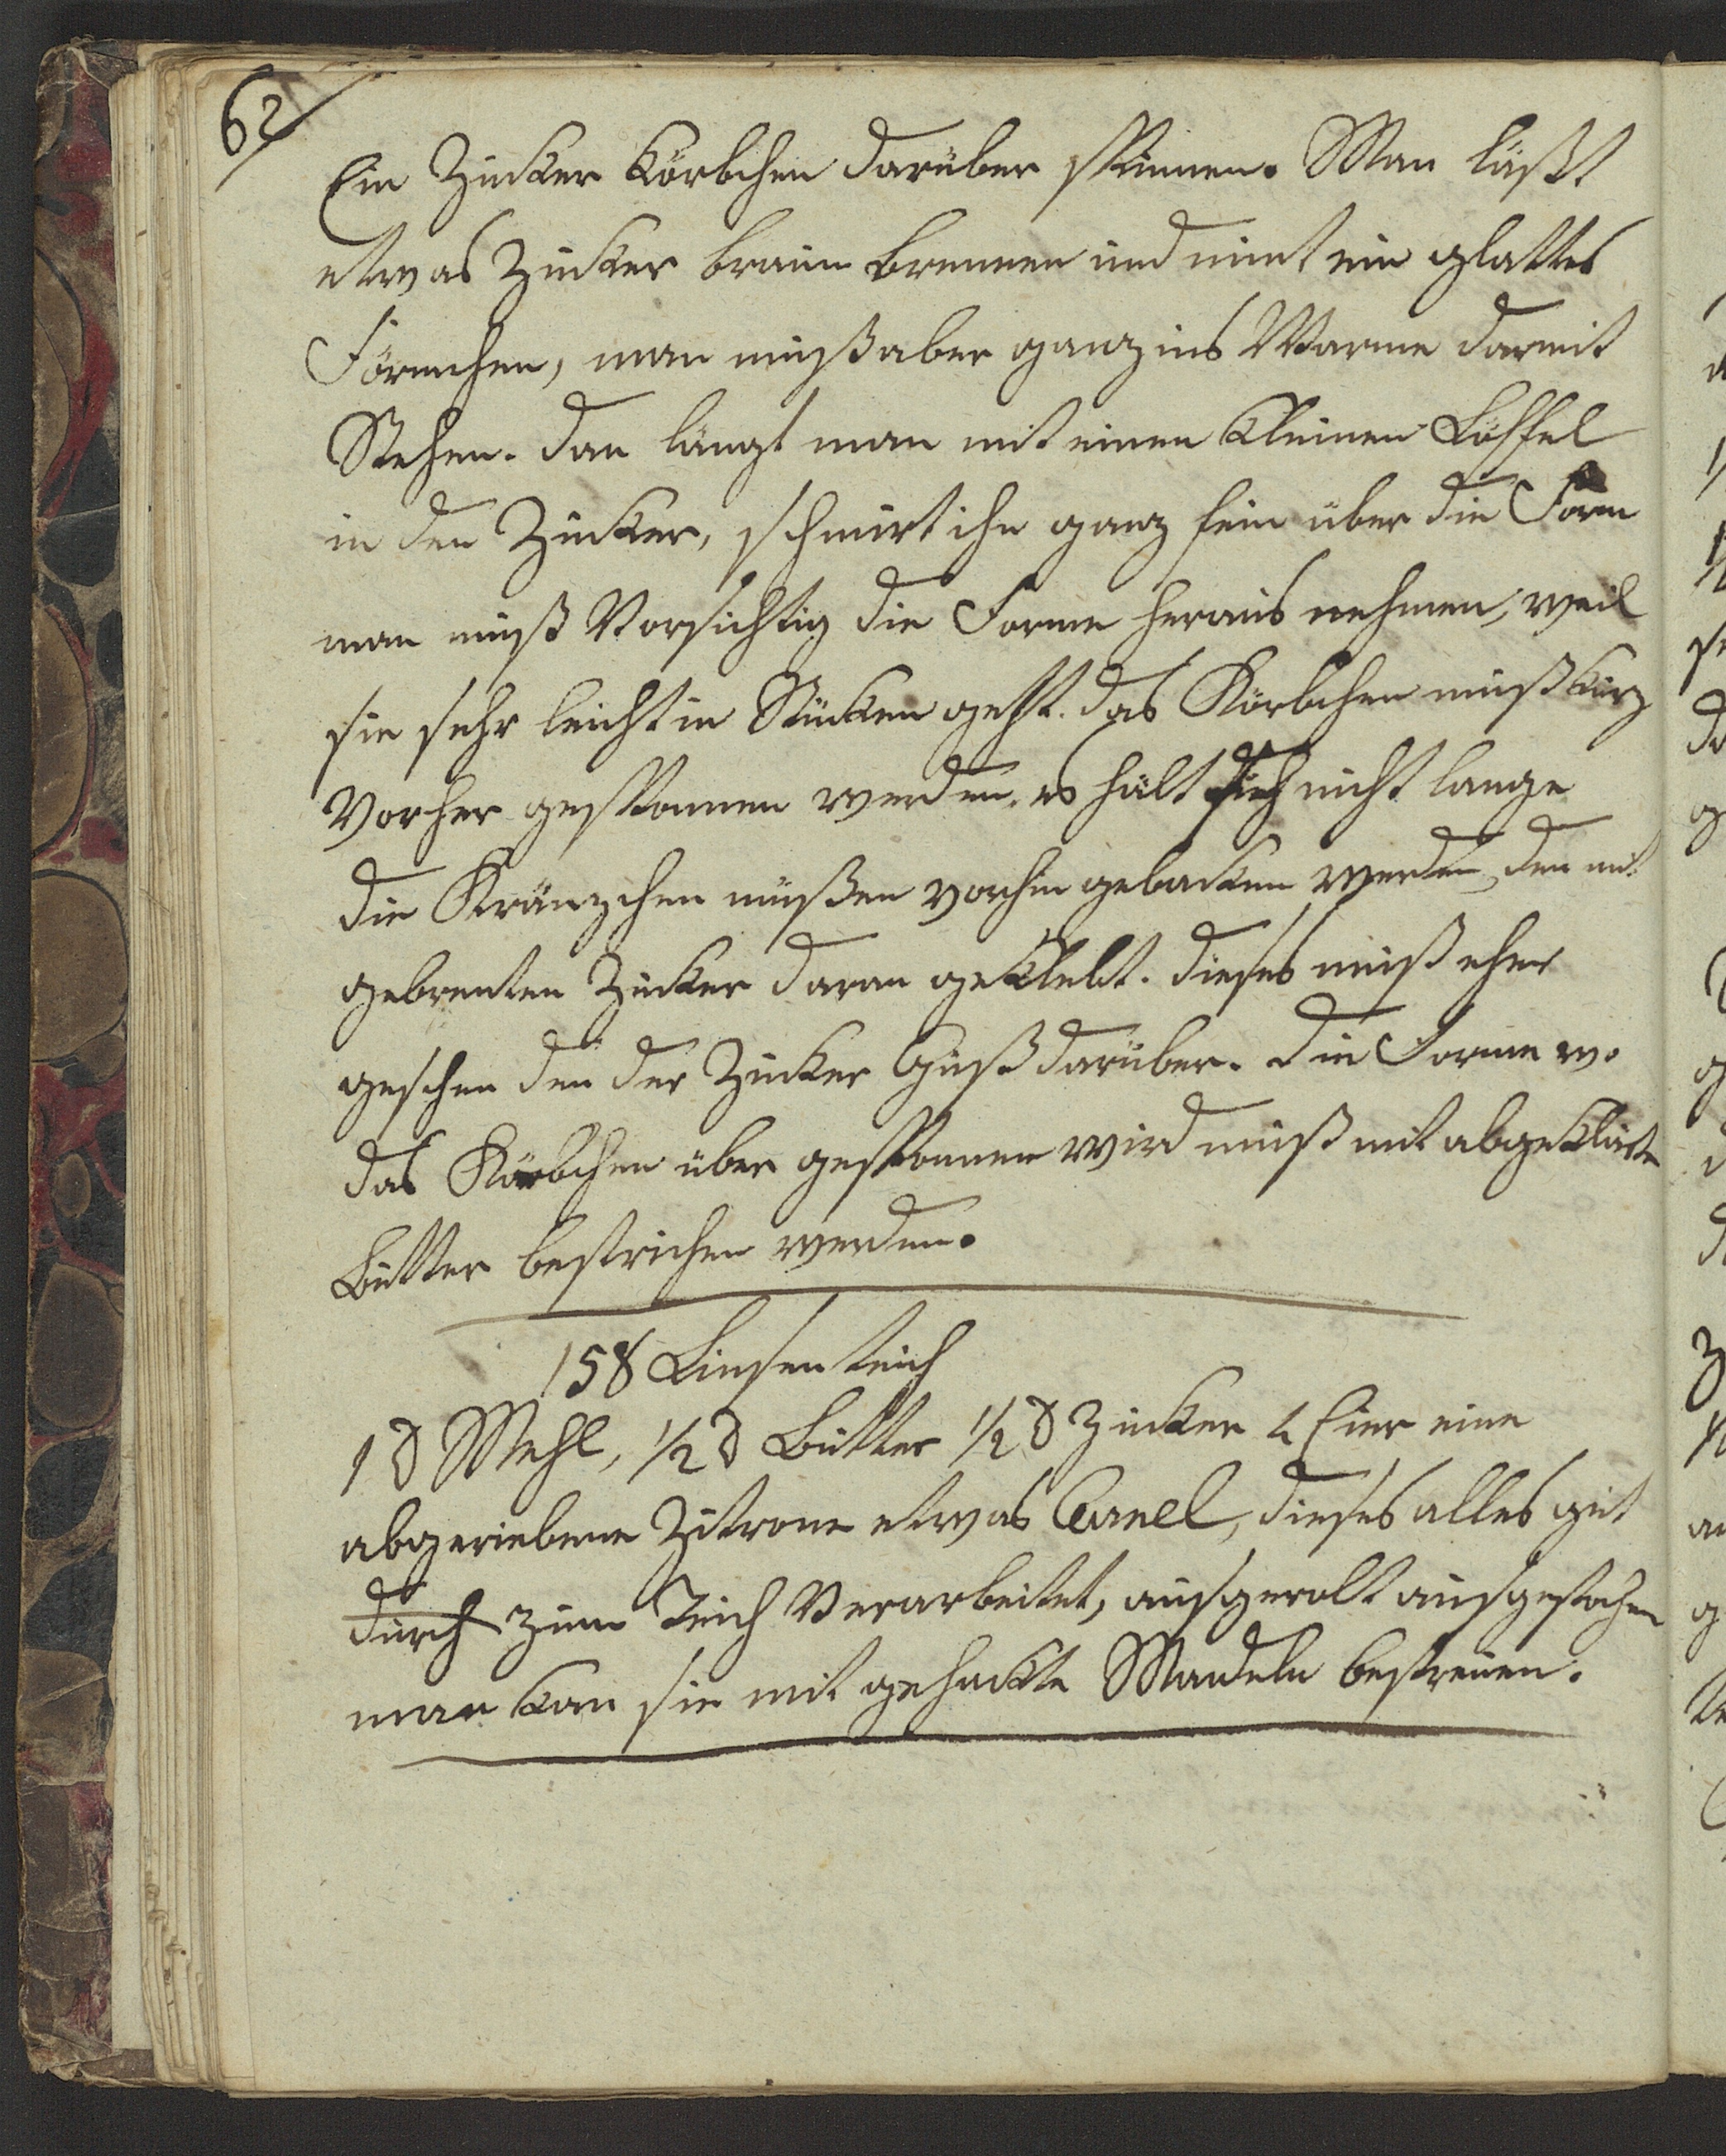 62
Ein Zucker Körbchen darüber spinnen. Man läßt
etwas Zucker braun brennen und nimt ein glattes
Förmchen, man muß aber ganz ins Warme darmit
Stehen. dan längt man mit einen kleinen Löffel
in den Zucker, schmirt ihn ganz fein über die Form
man muß Vorsichtig die Forme heraus nehmen, weil
sie sehr leicht in Stücken geht. das Körbchen muß kurz
Vorher gesponnen werden. es hält sich nicht lange
die Kränzchen müßen vorhin gebacken werden, den mit
gebrenten Zucker daran geklebt. dieses muß eher
geschen den der Zucker Guß darüber. die Forme w.
das Körbchen über gesponnen wird muß mit abgeklärte
Butter bestrichen werden.
158 Linsen teich
1 ℔ Mehl, 1/2 ℔ Butter 1/2 ℔ Zucker 4 Eier eine
abgeriebene Zitrone etwas Canel, dieses alles gut
durch zum Teich Verarbeitet, ausgerolt ausgestochen
man kan sie mit gehackte Mandeln bestreuen.